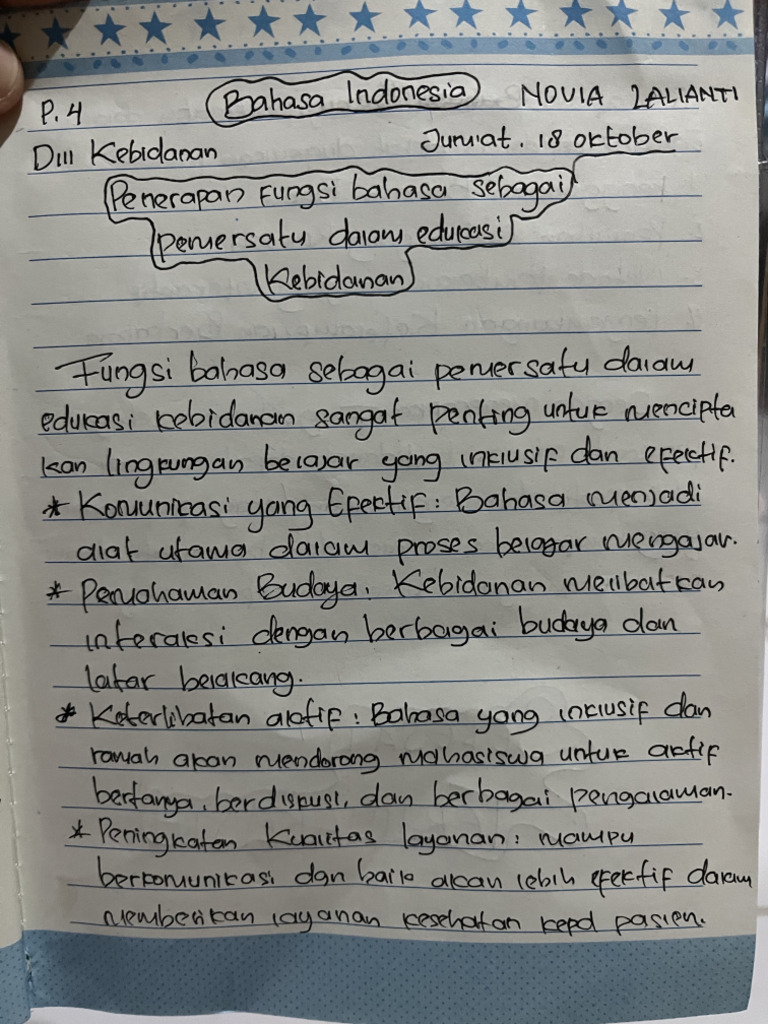 P.4 Bahasa Indonesia NOVIA LALIANTI
DIII Kebidanan Jum'at. 18 oktober
Penerapan Fungsi bahasa sebagai
pemersatu dalam edukasi
Kebidanan
Fungsi bahasa sebagai pemersatu dalam
edukasi kebidanan sangat penting untuk mencipta
kan lingkungan belajar yang inklusif dan efektif.
* Komunikasi yang Efektif: Bahasa menjadi
alat utama dalam proses belajar mengajar.
* Pemahaman Budaya. Kebidanan melibatkan
interaksi dengan berbagai budaya dan
latar belakang.
* Keterlibatan aktif: Bahasa yang inklusif dan
ramah akan mendorong mahasiswa untuk aktif
bertanya, berdiskusi, dan berbagai pengalaman.
* Peningkatan Kualitas layanan: mampu
berkomunikasi dgn baik akan lebih efektif dalam
memberikan layanan kesehatan kepd pasien.